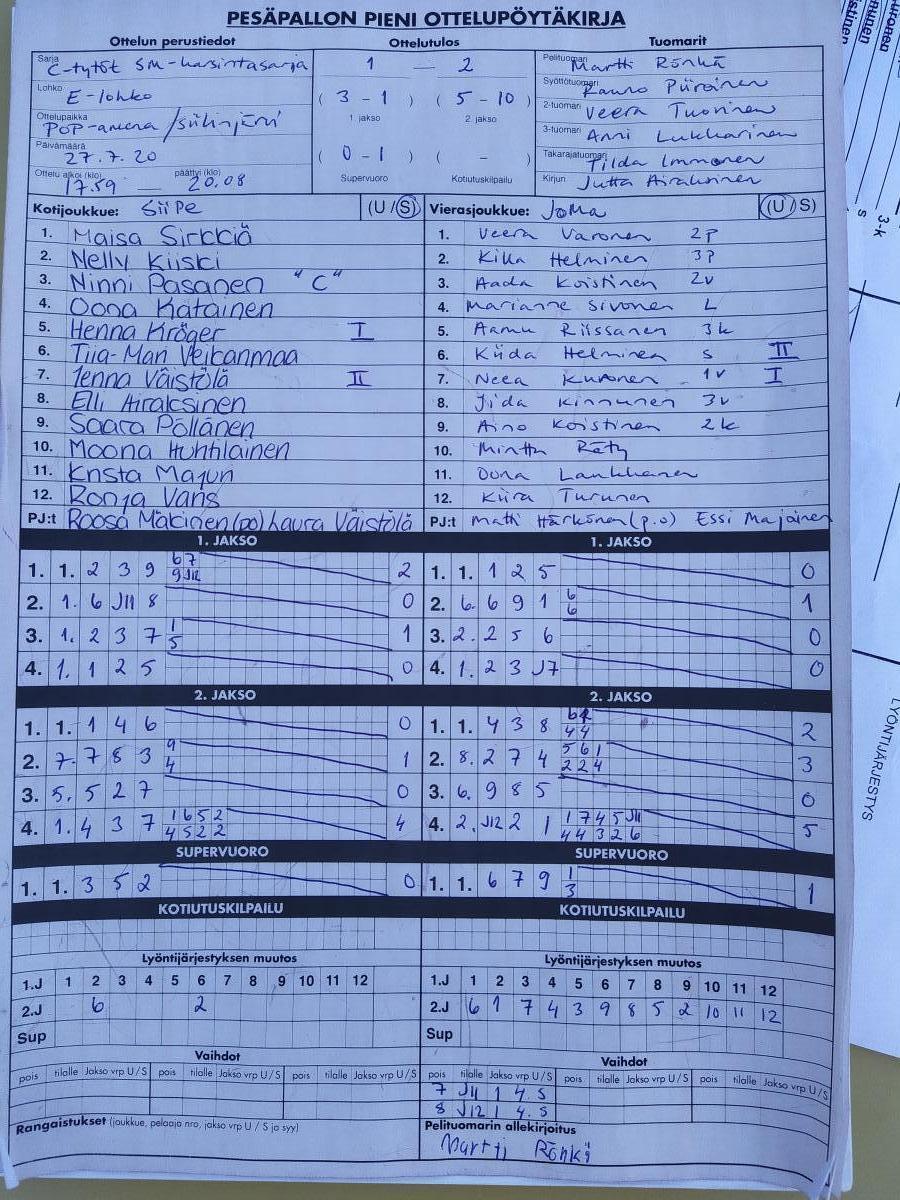 PESÄPALLON PIENI OTTELUPÖYTÄKIRJA
Ottelun perustiedot
Sarja C-tytöt SM-karsintasarja
Lohko E-lohko
Ottelupaikka POP-areena / Siilinjärvi
Päivämäärä 27.7.20
Ottelu alkoi (klo) päättyi (klo)
17.59 — 20.08
Ottelutulos
1 — 2
( 3 - 1 ) ( 5 - 10 )
1. jakso 2. jakso
( 0 - 1 ) ( - )
Supervuoro Kotiutuskilpailu
Tuomarit
Pelituomari Martti Rönkä
Syöttötuomari Rauno Piirainen
2-tuomari Veera Tuovinen
3-tuomari Anni Lukkarinen
Takarajatuomari Tilda Immonen
Kirjuri Jutta Airaksinen
Kotijoukkue: SiiPe (U / S)
1. Maisa Sirkkiä
2. Nelly Kiiski
3. Ninni Pasanen "C"
4. Oona Kätäinen
5. Henna Kröger I
6. Tiia-Mari Veikanmaa
7. Jenna Väistölä II
8. Elli Airaksinen
9. Saara Pöllänen
10. Moona Huhtilainen
11. Krista Majuri
12. Ronja Väris
PJ:t Roosa Mäkinen (po) Laura Väistölä
Vierasjoukkue: JoMa (U / S)
1. Veera Varonen 2p
2. Killa Helminen 3p
3. Aada Koistinen 2v
4. Marianne Sivonen L
5. Aamu Riissanen 3k
6. Kiida Helminen s II
7. Neea Kuronen 1v I
8. Jida Kinnunen 3v
9. Aino Koistinen 2k
10. Minttu Räty
11. Oona Laukkanen
12. Kiira Turunen
PJ:t Matti Härkönen (p.o) Essi Majoinen
1. JAKSO
1. 1. 2 3 9 6 7 2
9 J12
2. 1. 6 J11 8 0
3. 1. 2 3 7 1 1
5
4. 1. 1 2 5 0
1. JAKSO
1. 1. 1 2 5 0
2. 6. 6 9 1 6 1
6
3. 2. 2 5 6 0
4. 1. 2 3 J7 0
2. JAKSO
1. 1. 1 4 6 0
2. 7. 7 8 3 9 1
4
3. 5. 5 2 7 0
4. 1. 4 3 7 1 6 5 2 4
4 5 2 2
2. JAKSO
1. 1. 4 3 8 2
4 4
2. 8. 2 7 4 5 6 1 3
2 2 4
3. 6. 9 8 5 0
4. 2. J12 2 1 1 7 4 5 J11 5
4 4 3 2 6
SUPERVUORO
1. 1. 3 5 2 0
SUPERVUORO
1. 1. 6 7 9 1 1
3
KOTIUTUSKILPAILU
KOTIUTUSKILPAILU
Lyöntijärjestyksen muutos
1.J 1 2 3 4 5 6 7 8 9 10 11 12
2.J 6 2
Sup
Lyöntijärjestyksen muutos
1.J 1 2 3 4 5 6 7 8 9 10 11 12
2.J 6 1 7 4 3 9 8 5 2 10 11 12
Sup
Vaihdot
pois tilalle Jakso vrp U / S pois tilalle Jakso vrp U / S pois tilalle Jakso vrp U / S
Vaihdot
pois tilalle Jakso vrp U / S pois tilalle Jakso vrp U / S pois tilalle Jakso vrp U / S
7 J11 1 4. S
8 J12 1 4. S
Rangaistukset (joukkue, pelaaja nro, jakso vrp U / S ja syy)
Pelituomarin allekirjoitus
Martti Rönkä
3-k
S
LYÖNTIJÄRJESTYS